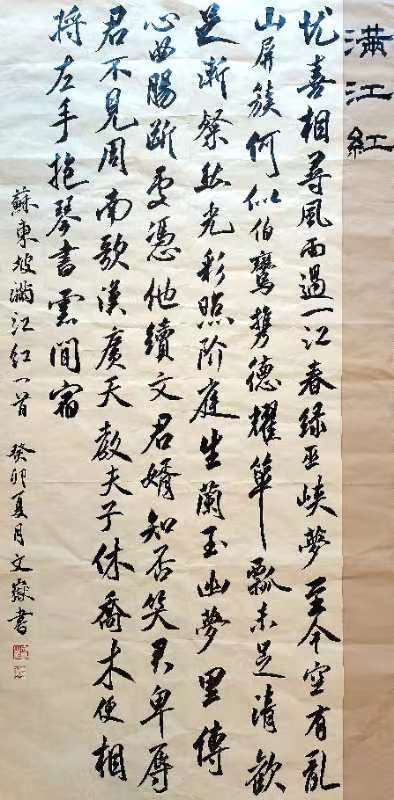 滿江紅
忧喜相尋風雨過一江春綠巫峽夢至今空有亂
山屏簇何似伯鸞携德耀箪瓢未足清歡
足漸粲然光彩照阶庭生蘭玉幽夢里傳
心曲腸斷處憑他續文君婿知否笑君卑辱
君不見周南歌漢廣天教夫子休喬木便相
將左手抱琴書雲間宿
蘇東坡滿江紅一首 癸卯夏月文嶽書